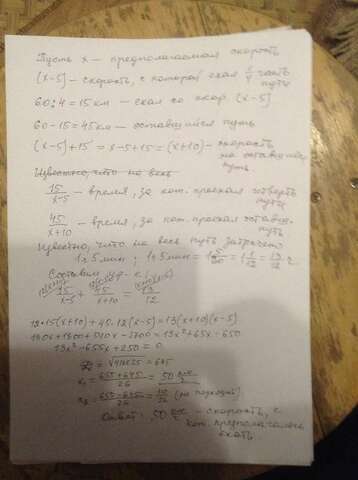 Пусть x — предполагаемая скорость
(x-5) - скорость, с которой ехал 1/4 часть пути
60:4=15км — ехал со скор. (x-5)
60-15=45км — оставшийся путь
(x-5)+15 = x-5+15 = (x+10) - скорость на оставшемся путь
Известно, что на весь
15/x-5 - время, за кот. проехал четверть пути
45/x+10 - время, за кот. проехал оставш. путь
Известно, что на весь путь затрачено
1ч 5мин; 1ч 5мин = 1 5/60 = 1 1/12 = 13/12 ч
Составим ур-е:
15/x-5 + 45/x+10 = 13/12
12·15(x+10) + 45·12(x-5) = 13(x+10)(x-5)
13x²-655x+250=0
x₁ = 655+645/26 = 50 км/ч
x₂ = 655-645/26 = 10/26 (не подходит)
Ответ: 50 км/ч - скорость, с
кот. предполагалось
ехать